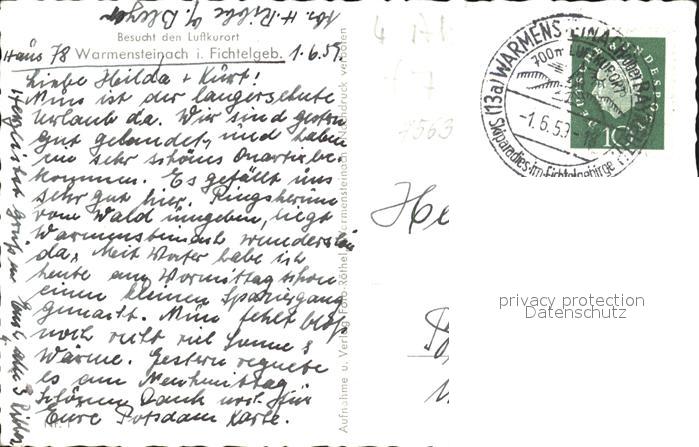 Abs. H. Rible b/
Besucht den Luftkurort
Haus 78 Warmensteinach i. Fichtelgeb. 1.6.59.
Liebe Heilda + Kurt!
Nun ist der langersehnte
Urlaub da. Wir sind gestern
gut gelandet, und haben
ein sehr schönes Quartier be-
kommen. Es gefällt uns
sehr gut hier. Ringsherum
vom Wald umgeben, liegt
Warmensteinach wunderschön
da. Mit habe ich
heute am Vormittag schon
einen kleinen Spaziergang
gemacht. Nun fehlt bloß
noch recht viel Sonne &
Wärme. Gestern regnete
es am Nachmittag.
Schönen Dank noch für
Eure Potsdam Karte.
Herzliche Grüße
Nr. 1
Aufnahme u. Verlag: Foto-Röthel, Warmensteinach - Nachdruck verboten
(13a) WARMENSTEINACH über BAYREUTH
700m LUFTKURORT
-1.6.59-
Skiparadies im Fichtelgebirge
DEUTSCHE BUNDESPOST
10
He
privacy protection
Datenschutz